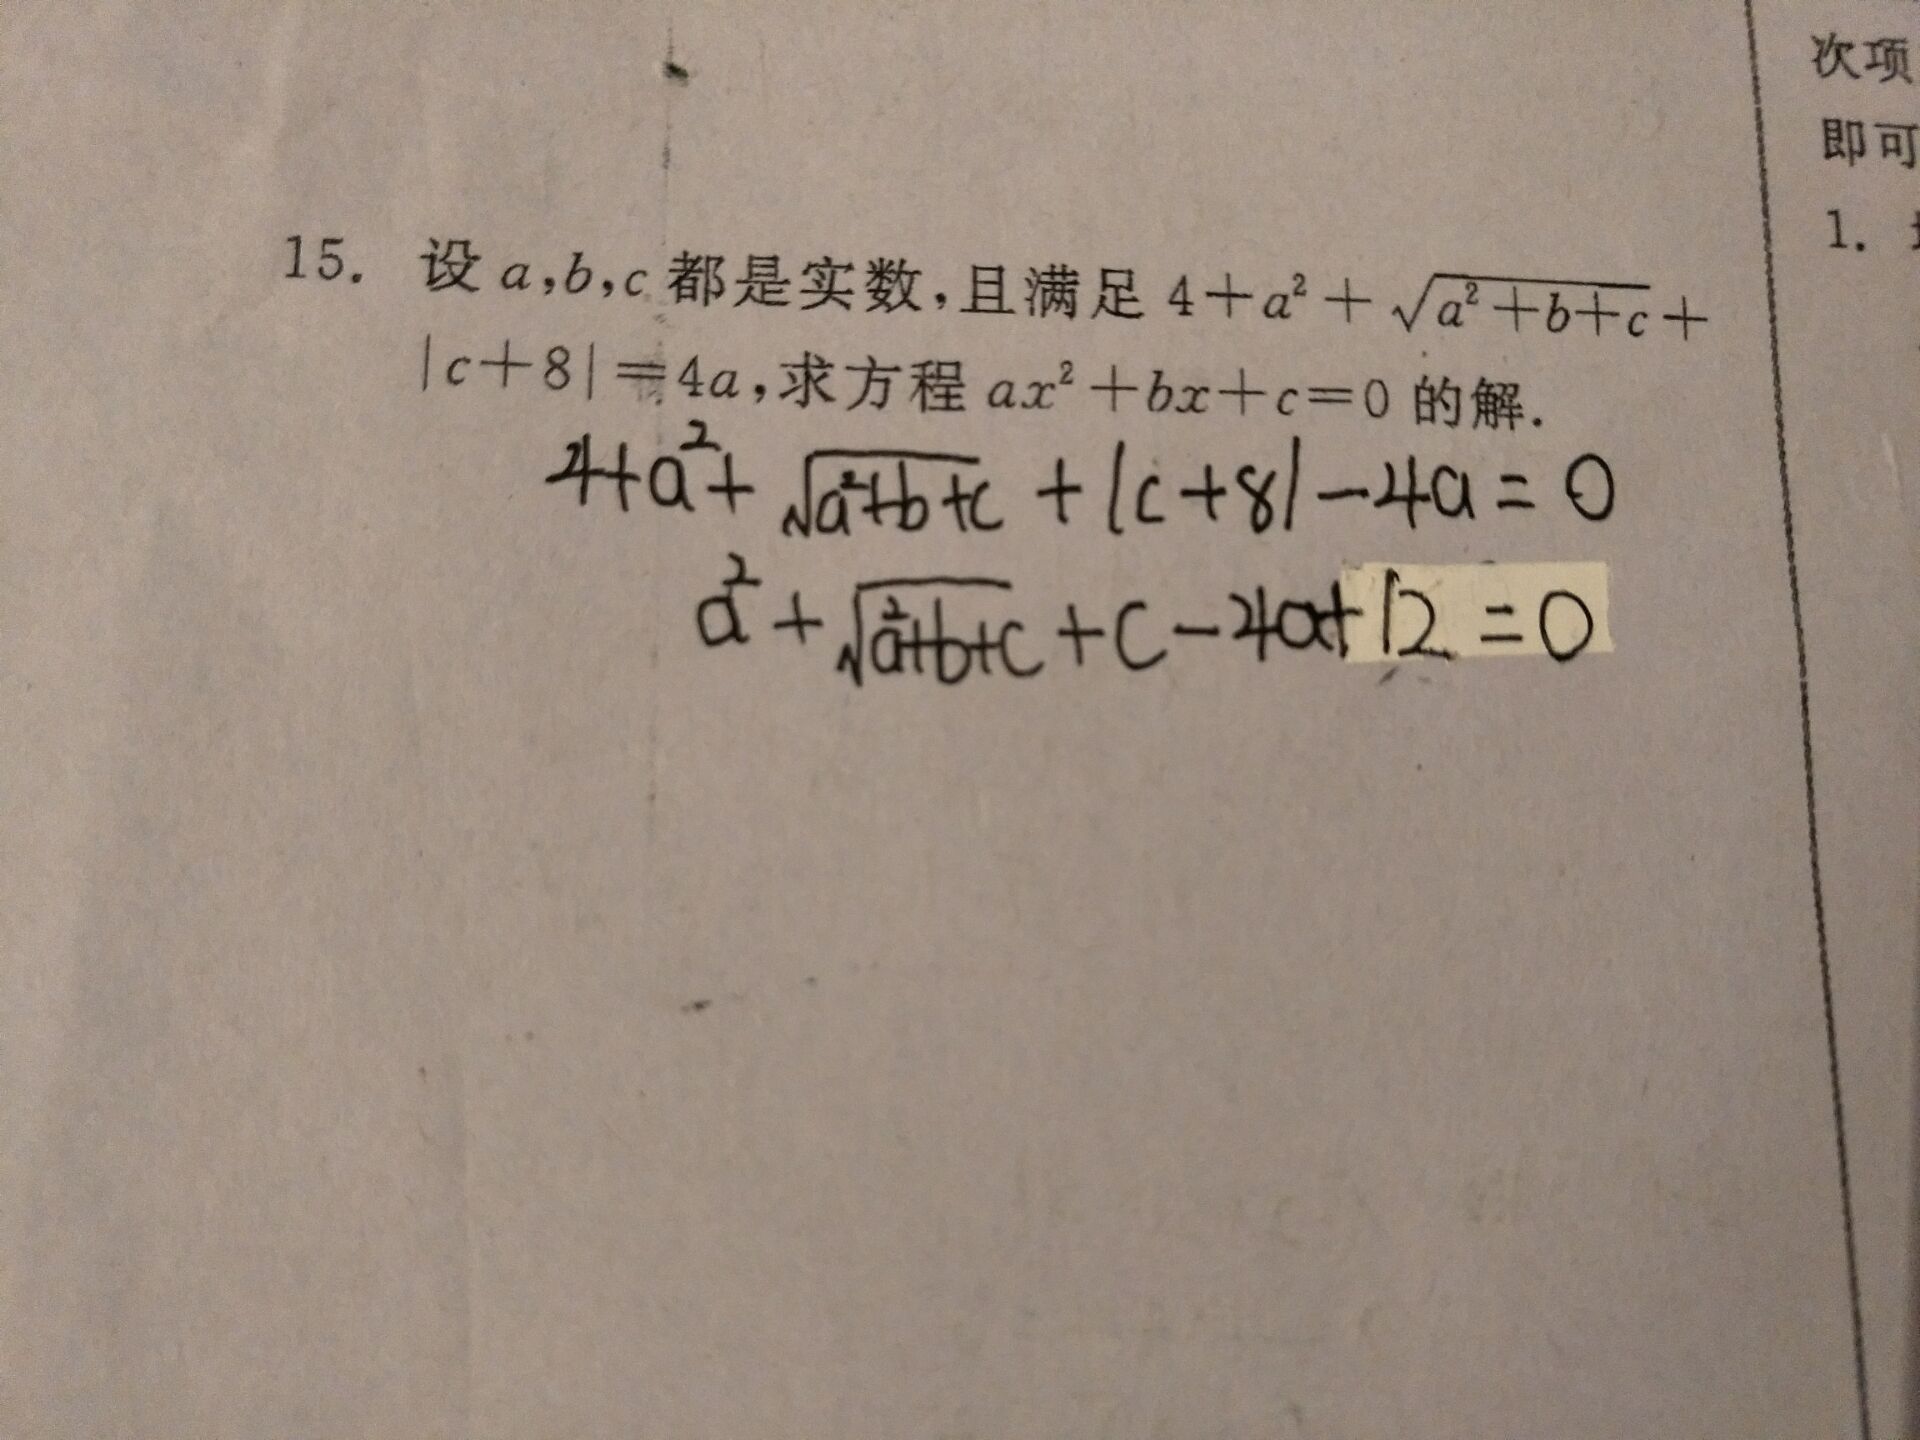 15. 设 a,b,c 都是实数,且满足 4+a²+√(a²+b+c)+
|c+8|=4a,求方程 ax²+bx+c=0 的解.
4+a²+√(a²+b+c)+|c+8|-4a=0
a²+√(a²+b+c)+c-4a+12=0
次项
即可
1.